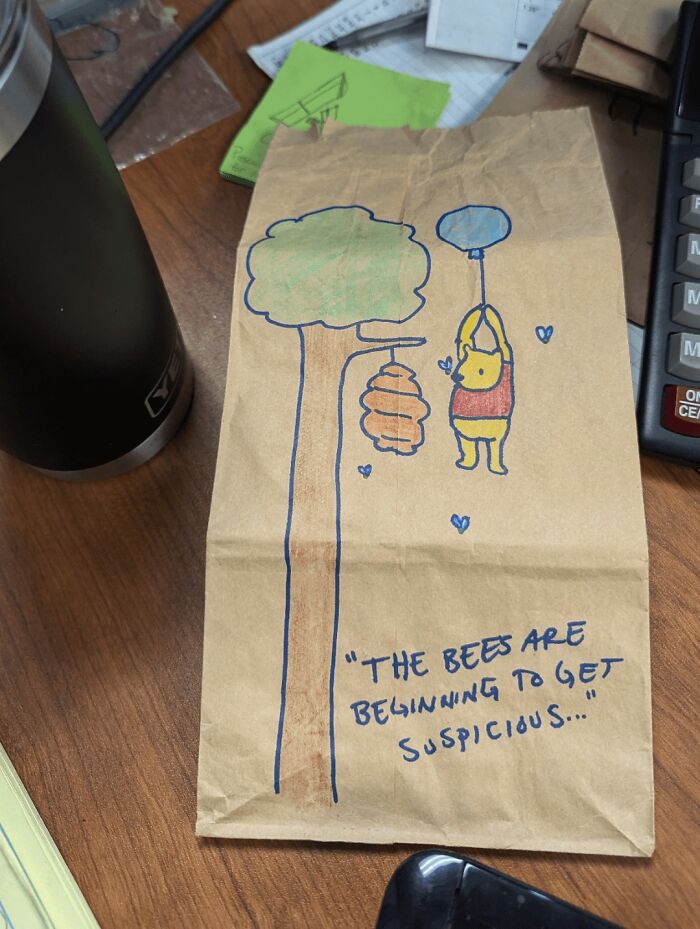 "THE BEES ARE
BEGINNING TO GET
SUSPICIOUS..."
YE
M
M
M
ON
CE/